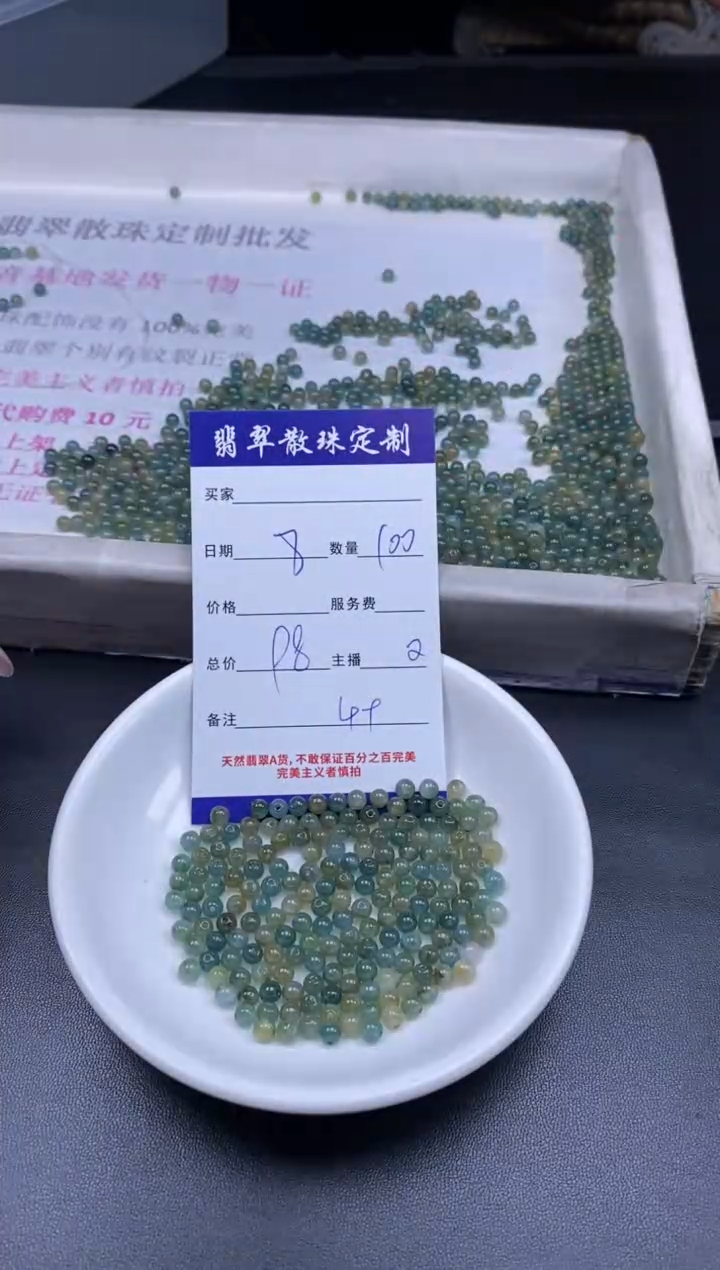 翡翠散珠定制批发
基地发货一物一证
配饰没有 100%完美
翡翠个别有纹裂正
完美主义者慎拍
代购费 10 元
上架
上
证
翡翠散珠定制
买家
日期 8 数量 100
价格 服务费
总价 98 主播 2
备注
天然翡翠A货,不敢保证百分之百完美
完美主义者慎拍